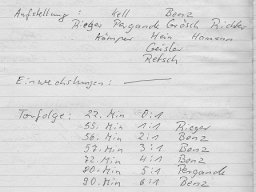 Aufstellung: Kell Benz
Rieger Pergande Grösch Richter
Kämper Hein Homann
Geisler
Retsch
Einwechslungen: —
Torfolge: 22. Min 0:1
55. Min 1:1 Rieger
56. Min 2:1 Benz
57. Min 3:1 Benz
72. Min 4:1 Benz
80. Min 5:1 Pergande
90. Min 6:1 Benz